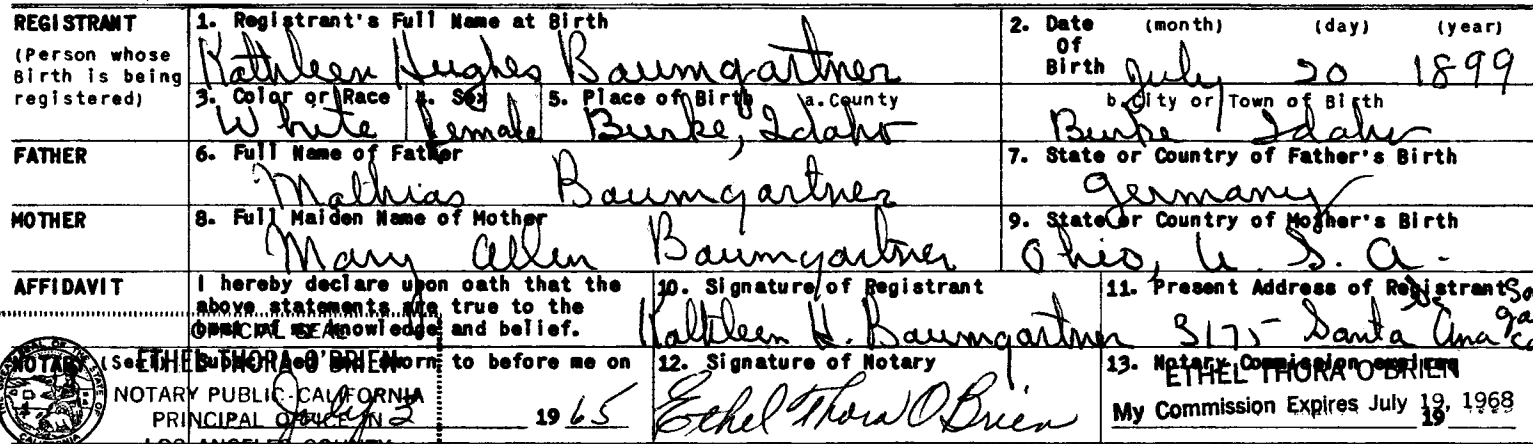 REGISTRANT
(Person whose
Birth is being
registered)
1. Registrant's Full Name at Birth
Kathleen Hughes Baumgartner
2. Date Of Birth (month) (day) (year)
July 20 1899
3. Color or Race
White
4. Sex
Female
5. Place of Birth a. County
Burke, Idaho
b. City or Town of Birth
Burke Idaho
FATHER
6. Full Name of Father
Mathias Baumgartner
7. State or Country of Father's Birth
Germany
MOTHER
8. Full Maiden Name of Mother
Mary Allen Baumgartner
9. State or Country of Mother's Birth
Ohio, U. S. A.
AFFIDAVIT
I hereby declare upon oath that the
above statements are true to the
best of my knowledge and belief.
10. Signature of Registrant
Kathleen H. Baumgartner
11. Present Address of Registrant
3175 Santa Ana
NOTARY (Seal)
Subscribed and sworn to before me on
July 2 1965
OFFICIAL SEAL
ETHEL THORA O'BRIEN
NOTARY PUBLIC-CALIFORNIA
PRINCIPAL OFFICE IN
LOS ANGELES COUNTY
12. Signature of Notary
Ethel Thora O'Brien
13. Notary Commission expires
ETHEL THORA O'BRIEN
My Commission Expires July 19, 1968
19